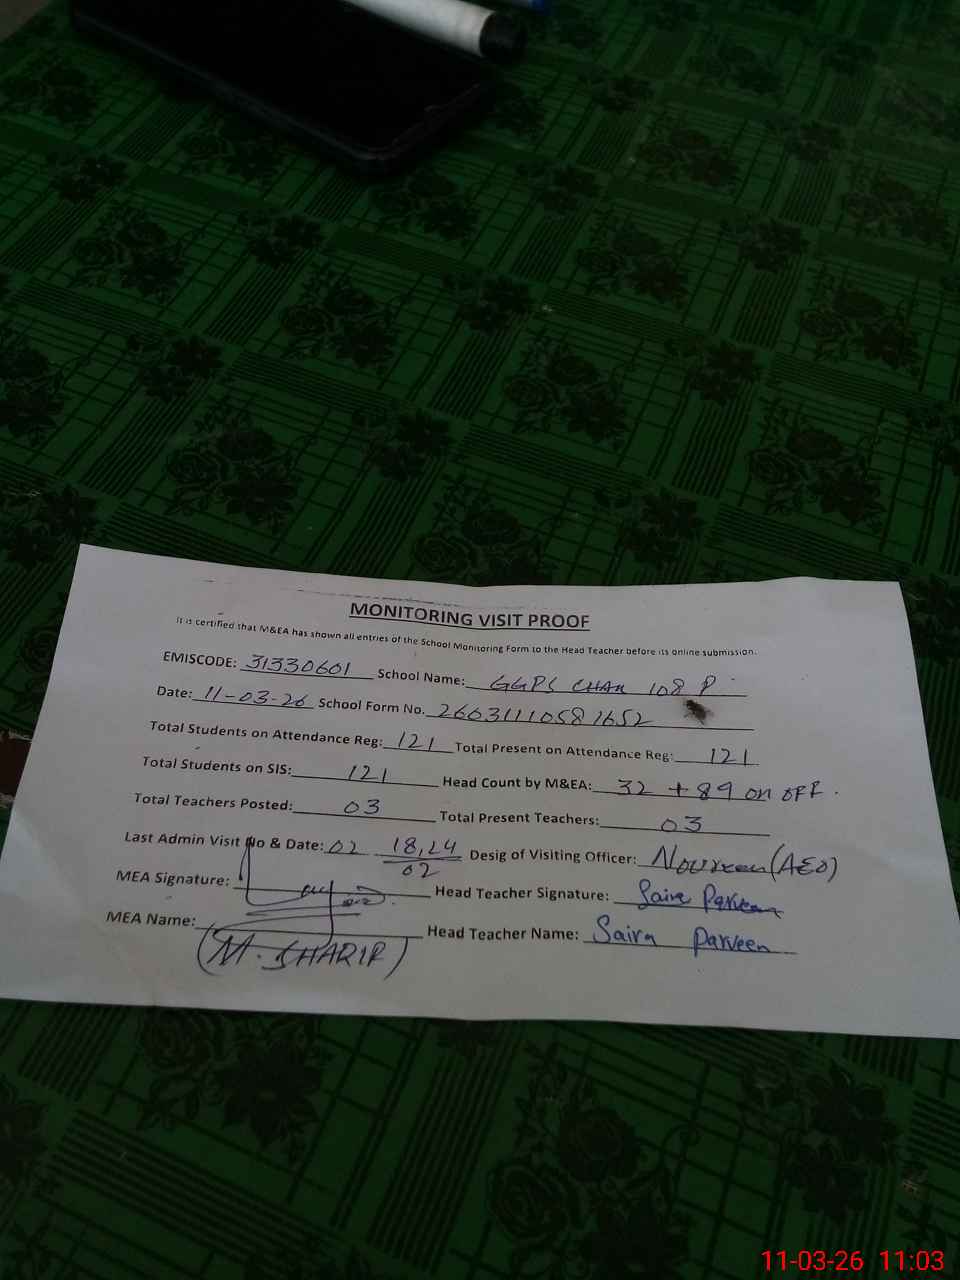 MONITORING VISIT PROOF
It is certified that M&EA has shown all entries of the School Monitoring Form to the Head Teacher before its online submission.
EMISCODE: 31330601 School Name: GGPS CHAK 108 P
Date: 11-03-26 School Form No. 26031110581652
Total Students on Attendance Reg: 121 Total Present on Attendance Reg: 121
Total Students on SIS: 121 Head Count by M&EA: 32 + 89 on OFF.
Total Teachers Posted: 03 Total Present Teachers: 03
Last Admin Visit No & Date: 02 18,24/02 Desig of Visiting Officer: Noureen (AEO)
MEA Signature: Head Teacher Signature: Saira Parveen
MEA Name: (M. SHARIF) Head Teacher Name: Saira Parveen
11-03-26 11:03